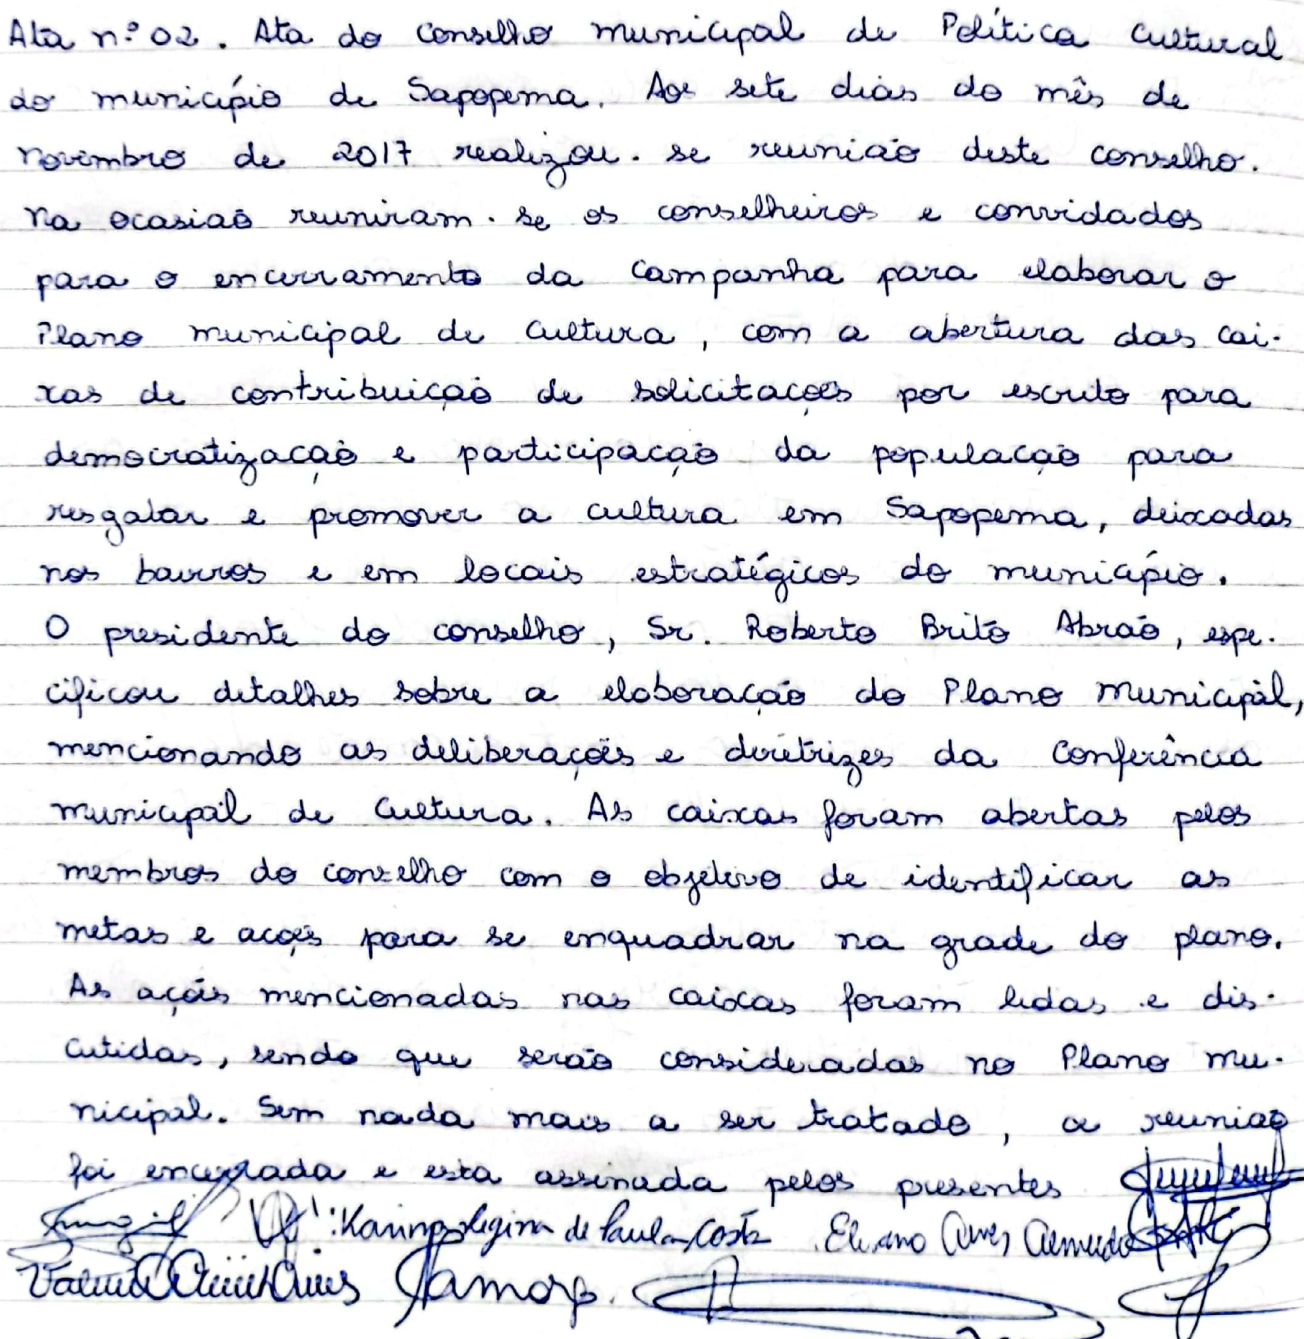 Ata nº 02. Ata do Conselho municipal de Política Cultural
do município de Sapopema. Aos sete dias do mês de
novembro de 2017 realizou-se reunião deste conselho.
Na ocasião reuniram-se os conselheiros e convidados
para o encerramento da Campanha para elaborar o
Plano municipal de Cultura, com a abertura das cai-
xas de contribuição de solicitações por escrito para
democratização e participação da população para
resgatar e promover a cultura em Sapopema, deixadas
nos bairros e em locais estratégicos do município.
O presidente do conselho, Sr. Roberto Brito Abraão, espe-
cificou detalhes sobre a elaboração do Plano Municipal,
mencionando as deliberações e diretrizes da Conferência
municipal de Cultura. As caixas foram abertas pelos
membros do conselho com o objetivo de identificar as
metas e ações para se enquadrar na grade do plano.
As ações mencionadas nas caixas foram lidas e dis-
cutidas, sendo que serão consideradas no Plano mu-
nicipal. Sem nada mais a ser tratado, a reunião
foi encerrada e esta assinada pelos presentes
Karina Regina de Paula Costa